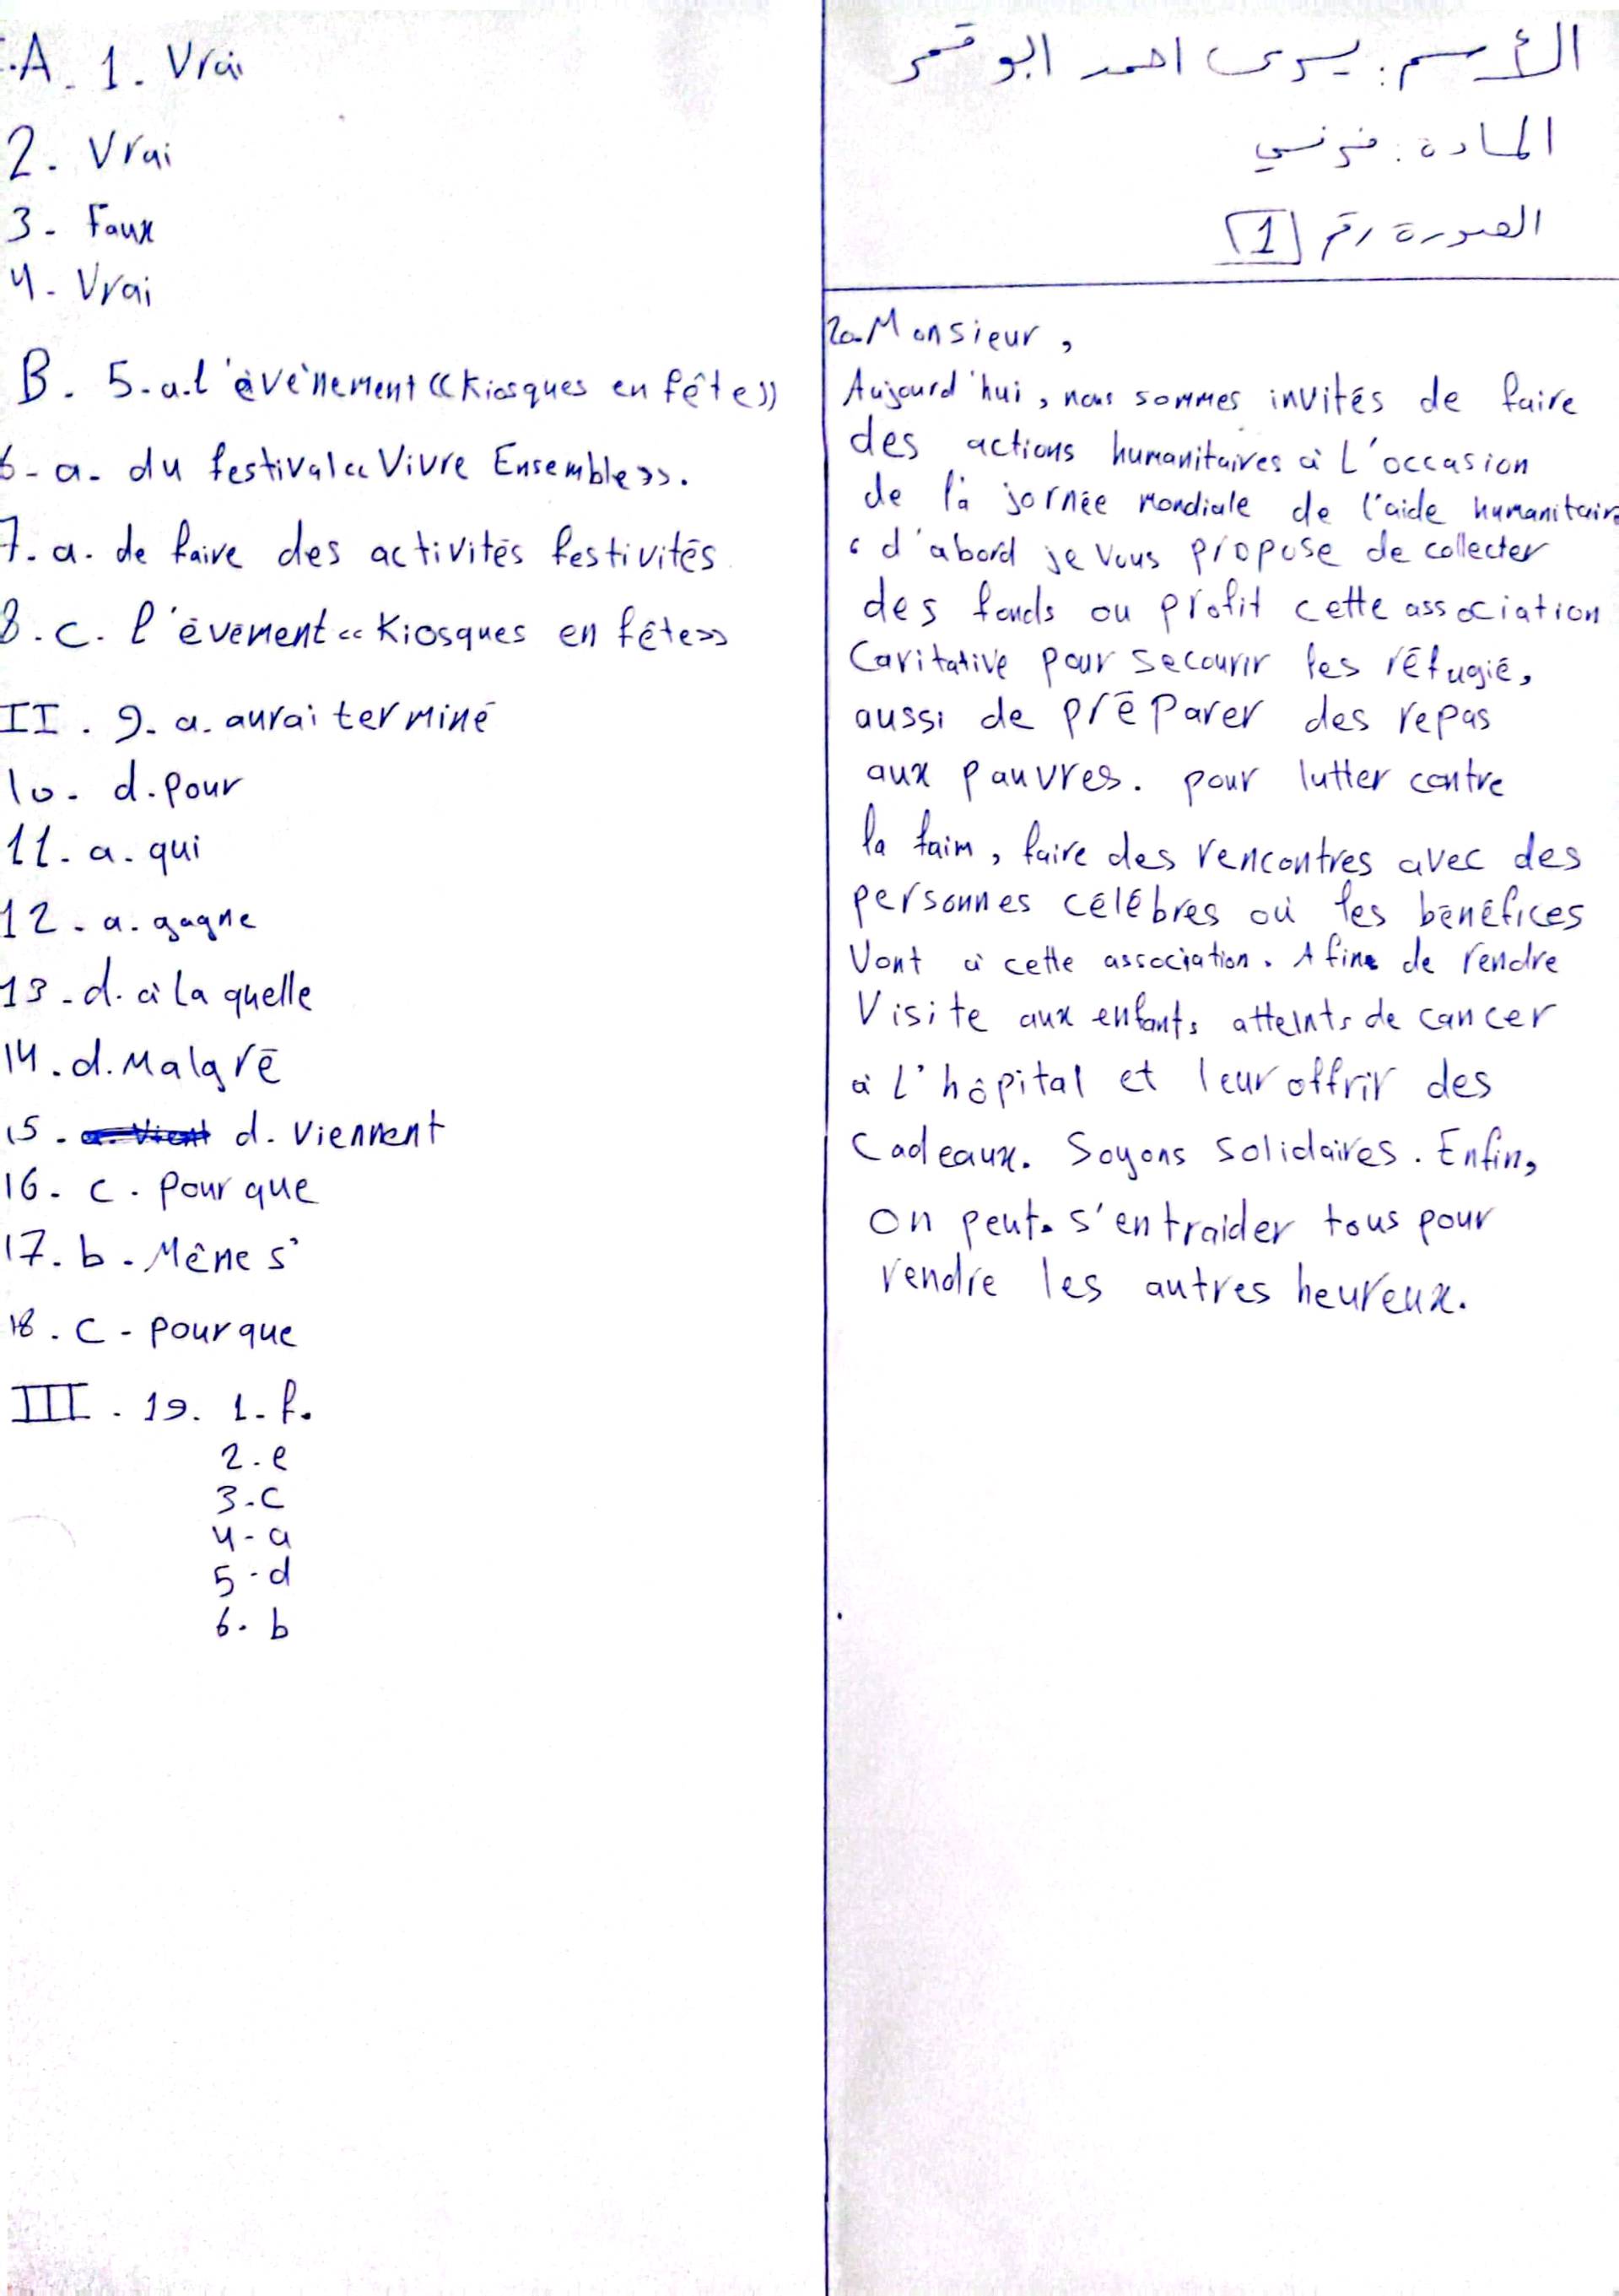 الأسم : يسرى احمد ابو قمر
المادة : فرنسي
الصورة رقم 1
A. 1. Vrai
2. Vrai
3- Faux
4- Vrai
B. 5-a.l'événement «Kiosques en fête»
6-a- du festival «Vivre Ensemble».
7.a. de faire des activités festivités
8.c. l'évément «Kiosques en fête»
II. 9. a. aurai terminé
10. d. pour
11. a. qui
12. a. gagne
13-d. à la quelle
14.d. Malgré
15. d. viennent
16. c. pour que
17. b. Mêne s'
18. c- pour que
III. 19. 1-f.
2.e
3-c
4-a
5-d
6. b
20. Monsieur,
Aujourd'hui, nous sommes invités de faire
des actions humanitaires à L'occasion
de la jornée mondiale de l'aide humanitaire
, d'abord je vous propose de collecter
des fonds ou profit cette association
Caritative pour secourir les réfugié,
aussi de préparer des repas
aux pauvres. pour lutter contre
la faim, faire des rencontres avec des
personnes célébres où les bénéfices
Vont à cette association. Afin de rendre
Visite aux enfants atteints de cancer
à L'hôpital et leur offrir des
Cadeaux. Soyons solidaires. Enfin,
On peut. s'entraider tous pour
rendre les autres heureux.